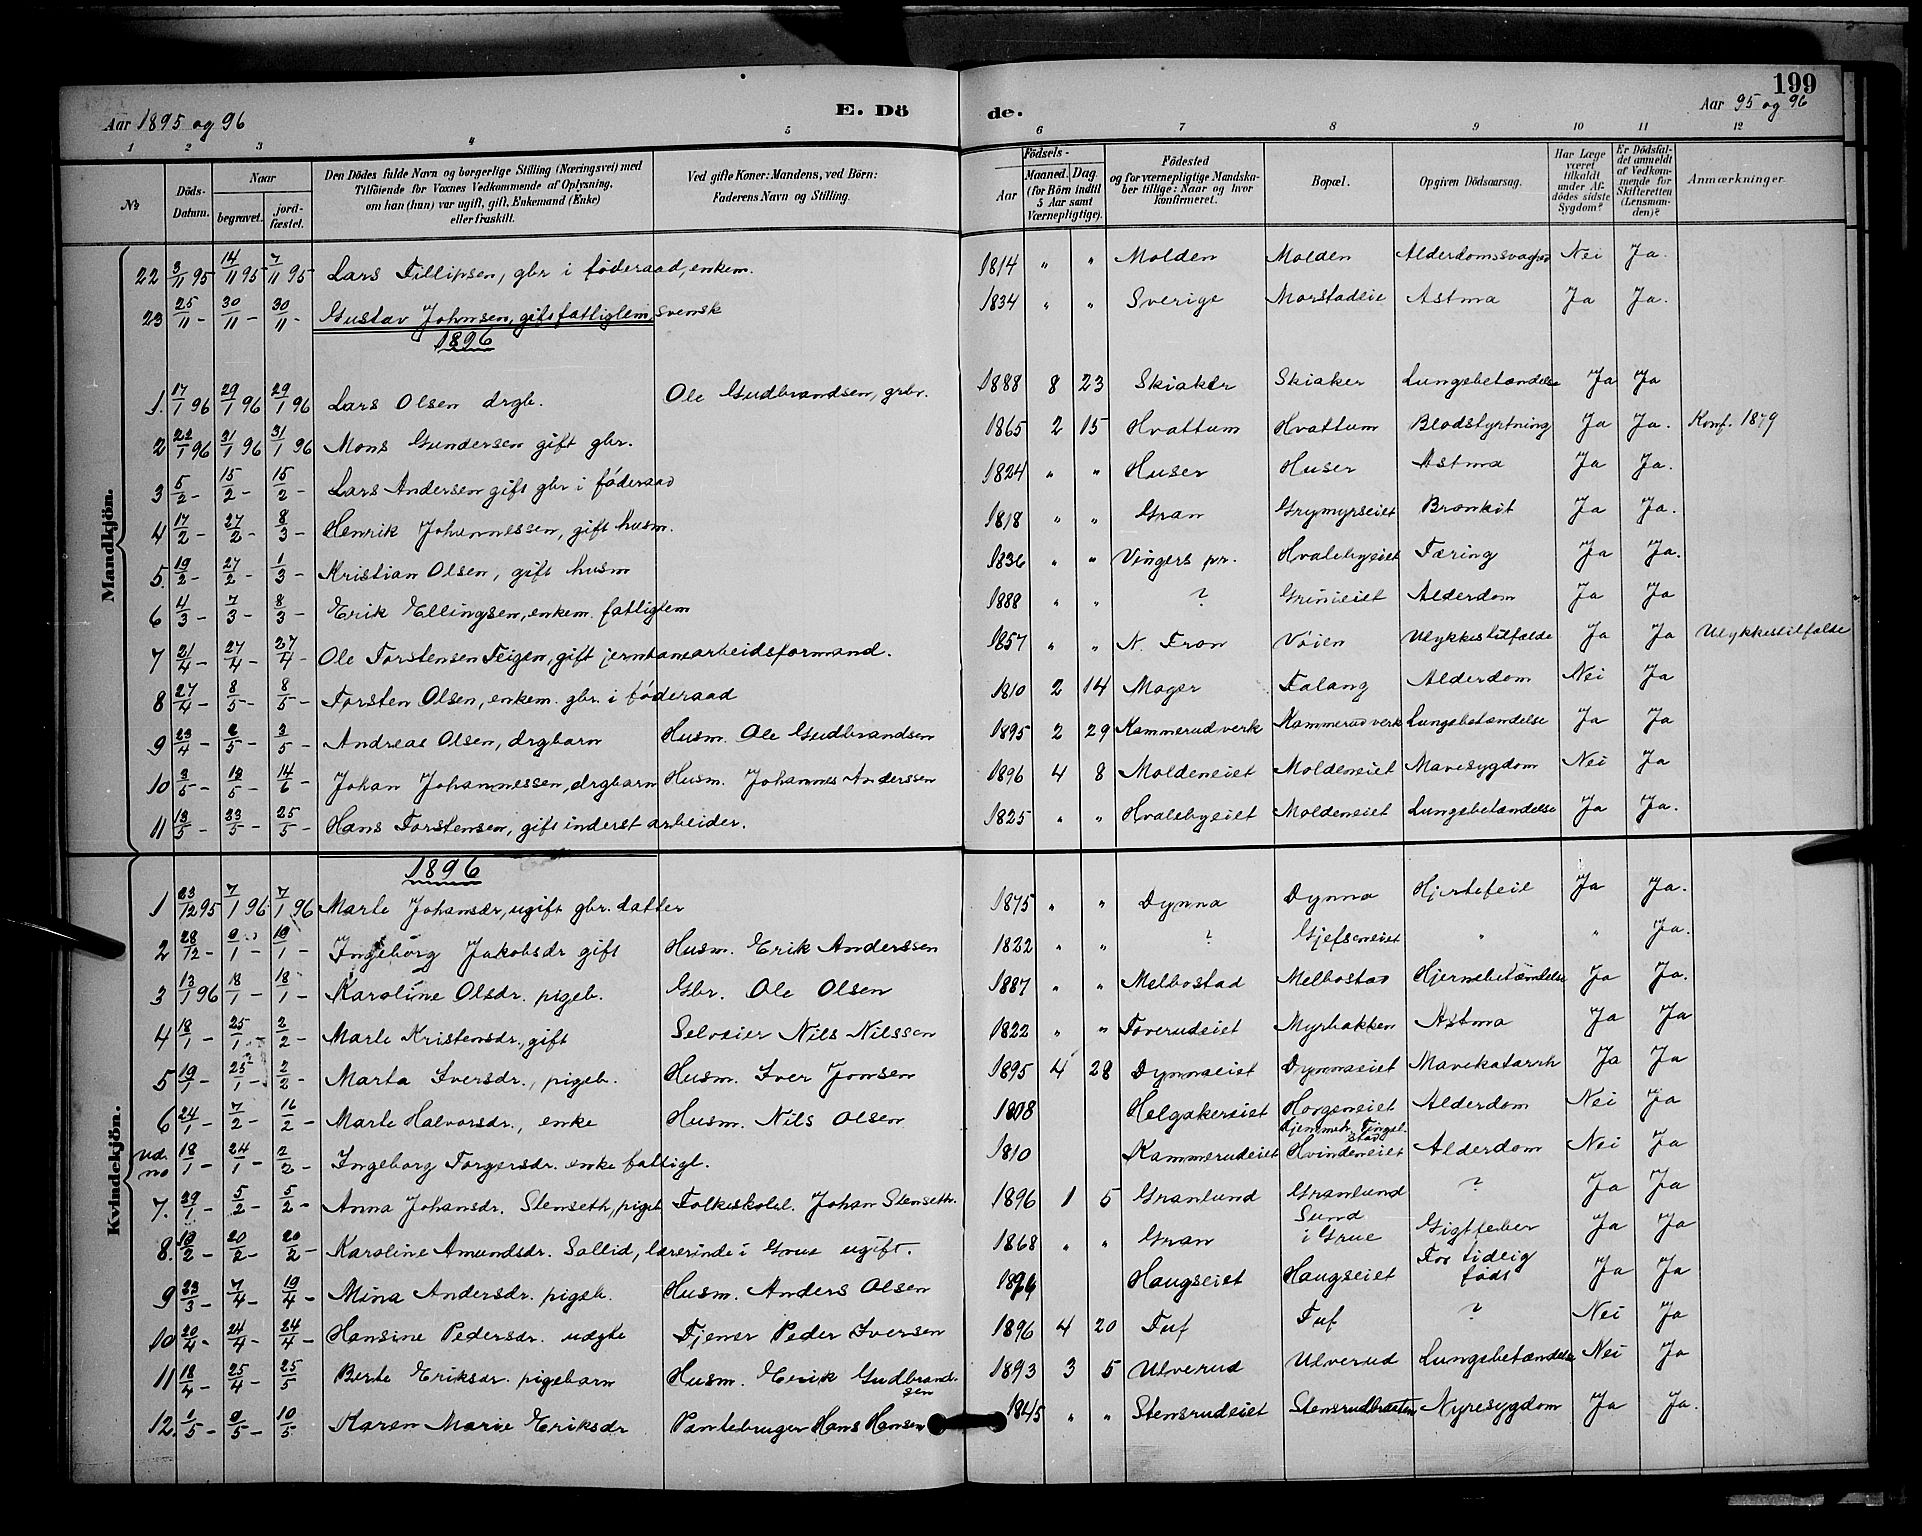 199
Aar 1895 og 96 E. Dö de. Aar 95 og 96
1 2 3 4 5 6 7 8 9 10 11 12
№ Döds-Datum. Naar begravet. jord-fæstet. Den Dödes fulde Navn og borgerlige Stilling (Næringsvei) med Tilföiende for Voxnes Vedkommende af Oplysning, om han (hun) var ugift, gift, Enkemand (Enke) eller fraskilt. Ved gifte Koner: Mandens, ved Börn: Faderens Navn og Stilling. Födsels- Aar Maaned. Dag. (for Börn indtil 5 Aar samt Værnepligtige). Födested og for værnepligtige Mandskaber tillige: Naar og hvor konfirmeret. Bopæl. Opgiven Dödsaarsag. Har Læge været tilkaldt under Afdödes sidste Sygdom? Er Dödsfaldet anmeldt af Vedkommende for Skifteretten (Lensmanden)? Anmærkninger.
Mandkjön.
22 3/11 95 14/11 95 7/11 95 Lars Tillipsen, gbr i föderaad, enkem. 1814 " " Molden Molden Alderdomssvaghed Nei Ja.
23 25/11 - 30/11 - 30/11 - Gustav Johnsen, gift fattiglem, svensk 1834 " " Sverige Morstadeie Astma Ja Ja.
1896
1. 17/1 96 29/1 96 29/1 96 Lars Olsen drgb. Ole Gudbrandsen, grbr. 1888 8 23 Skiaker Skiaker Lungebetændelse Ja Ja
2 22/1 96 31/1 96 31/1 96 Mons Gundersen gift gbr. 1865 2 15 Hvattum Hvattum Blodstyrtning Ja Ja. Konf. 1879
3 5/2 - 15/2 - 15/2 - Lars Andersen gift gbr i föderaad 1824 " " Huser Huser Astma Ja Ja.
4 17/2 - 27/2 - 8/3 - Henrik Johannessen, gift husm. 1818 " " Gran Grymyrseiet Bronkit Ja Ja.
5. 19/2 - 27/2 - 1/3 - Kristian Olsen, gift husm 1836 " " Vingers pr. Hvalebyeiet Tæring Ja Ja.
6 4/3 - 7/3 - 8/3 - Erik Ellingsen, enkem. fattiglem 1888 " " ? Grinieiet Alderdom Ja Ja
7 21/4 - 27/4 - 27/4 - Ole Torstensen Teigen, gift jernbanearbeidsformand. 1857 " " N. Fron Vöien Ulykkestilfælde Ja Ja Ulykkestilfælde
8 27/4 - 8/5 - 8/5 - Torsten Olsen, enkem. gbr. i föderaad 1810 2 14 Mager Falang Alderdom Nei Ja
9 23/4 - 2/5 - 3/5 - Andreas Olsen, drgbarn Husm. Ole Gudbrandsen 1895 2 29 Kammerudverk Kammerudverk Lungebetændelse Ja Ja
10 3/5 - 13/5 - 14/6 - Johan Johannessen, drgbarn Husm. Johannes Anderssen 1896 4 8 Moldeneiet Moldeneiet Mavesygdom Nei Ja
11 13/5 - 23/5 - 25/5 - Hans Torstensen, gift inderst arbeider. 1825 " " Hvalebyeiet Moldeneiet Lungebetændelse Ja Ja.
Kvindekjön.
1896
1 23/12 95 7/1 96 7/1 96 Marte Johansdr, ugift gbr. datter 1875 " " Dynna Dynna Hjertefeil Ja Ja.
2 28/12 - 9/1 - 19/1 - Ingeborg Jakobsdr gift Husm. Erik Anderssen 1822 " " ? Gjefseneiet " " Ja.
3 13/1 96 18/1 - 18/1 - Karoline Olsdr. pigeb. Gbr. Ole Olsen 1887 " " Melbostad Melbostad Hjernebetændelse Ja Ja.
4 18/1 - 25/1 - 2/2 - Marte Kristensdr., gift Selveier Nils Nilssen 1822 " " Toverudeiet Myrbakken Astma Ja Ja
5 19/1 - 25/1 - 2/2 - Marta Iversdr., pigeb. Husm. Iver Jonsen 1895 4 28 Dynnaeiet Dynnaeiet Mavekatarrh Ja Ja
6 24/1 - 7/2 - 16/2 - Marte Halvorsdr., enke Husm. Nils Olsen 1808 Helgakereiet Horgeneiet Alderdom Nei Ja
ud. no 18/1 - 24/1 - 2/2 - Ingeborg Torgersdr. enke fattigl. 1810 Kammerudeiet Hjemmeh. Tingelstad Hvindeneiet Alderdom Nei Ja
7. 29/1 - 5/2 - 5/2 - Anna Johansdr. Stenseth, pigeb Folkeskolel. Johan Stenseth. 1896 1 5 Granlund Granlund ? Ja Ja
8. 19/2 - 20/2 - 20/2 - Karoline Amundsdr. Sollid, lærerinde i Grue ugift. 1868 " " Gran Sund i Grue Gigtfeber Ja Ja
9 23/3 - 7/4 - 19/4 - Mina Andersdr. pigeb. Husm. Anders Olsen 1896 Haugseiet Haugseiet For tidlig födt Ja Ja
10 20/4 - 24/4 - 24/4 - Hansine Pedersdr. uægte Tjener Peder Iversen 1896 4 20 Tuf Tuf ? Nei Ja
11 18/4 - 25/4 - 25/5 Berte Eriksdr. pigebarn Husm. Erik Gudbrandsen 1893 3 5 Ulverud Ulverud Lungebetændelse Nei Ja
12. 1/5 - 9/5 - 10/5 Karen Marie Eriksdr Pantebruger Hans Hansen 1845 " " Stensrudeiet Stensrudbraaten Nyresygdom Ja Ja.